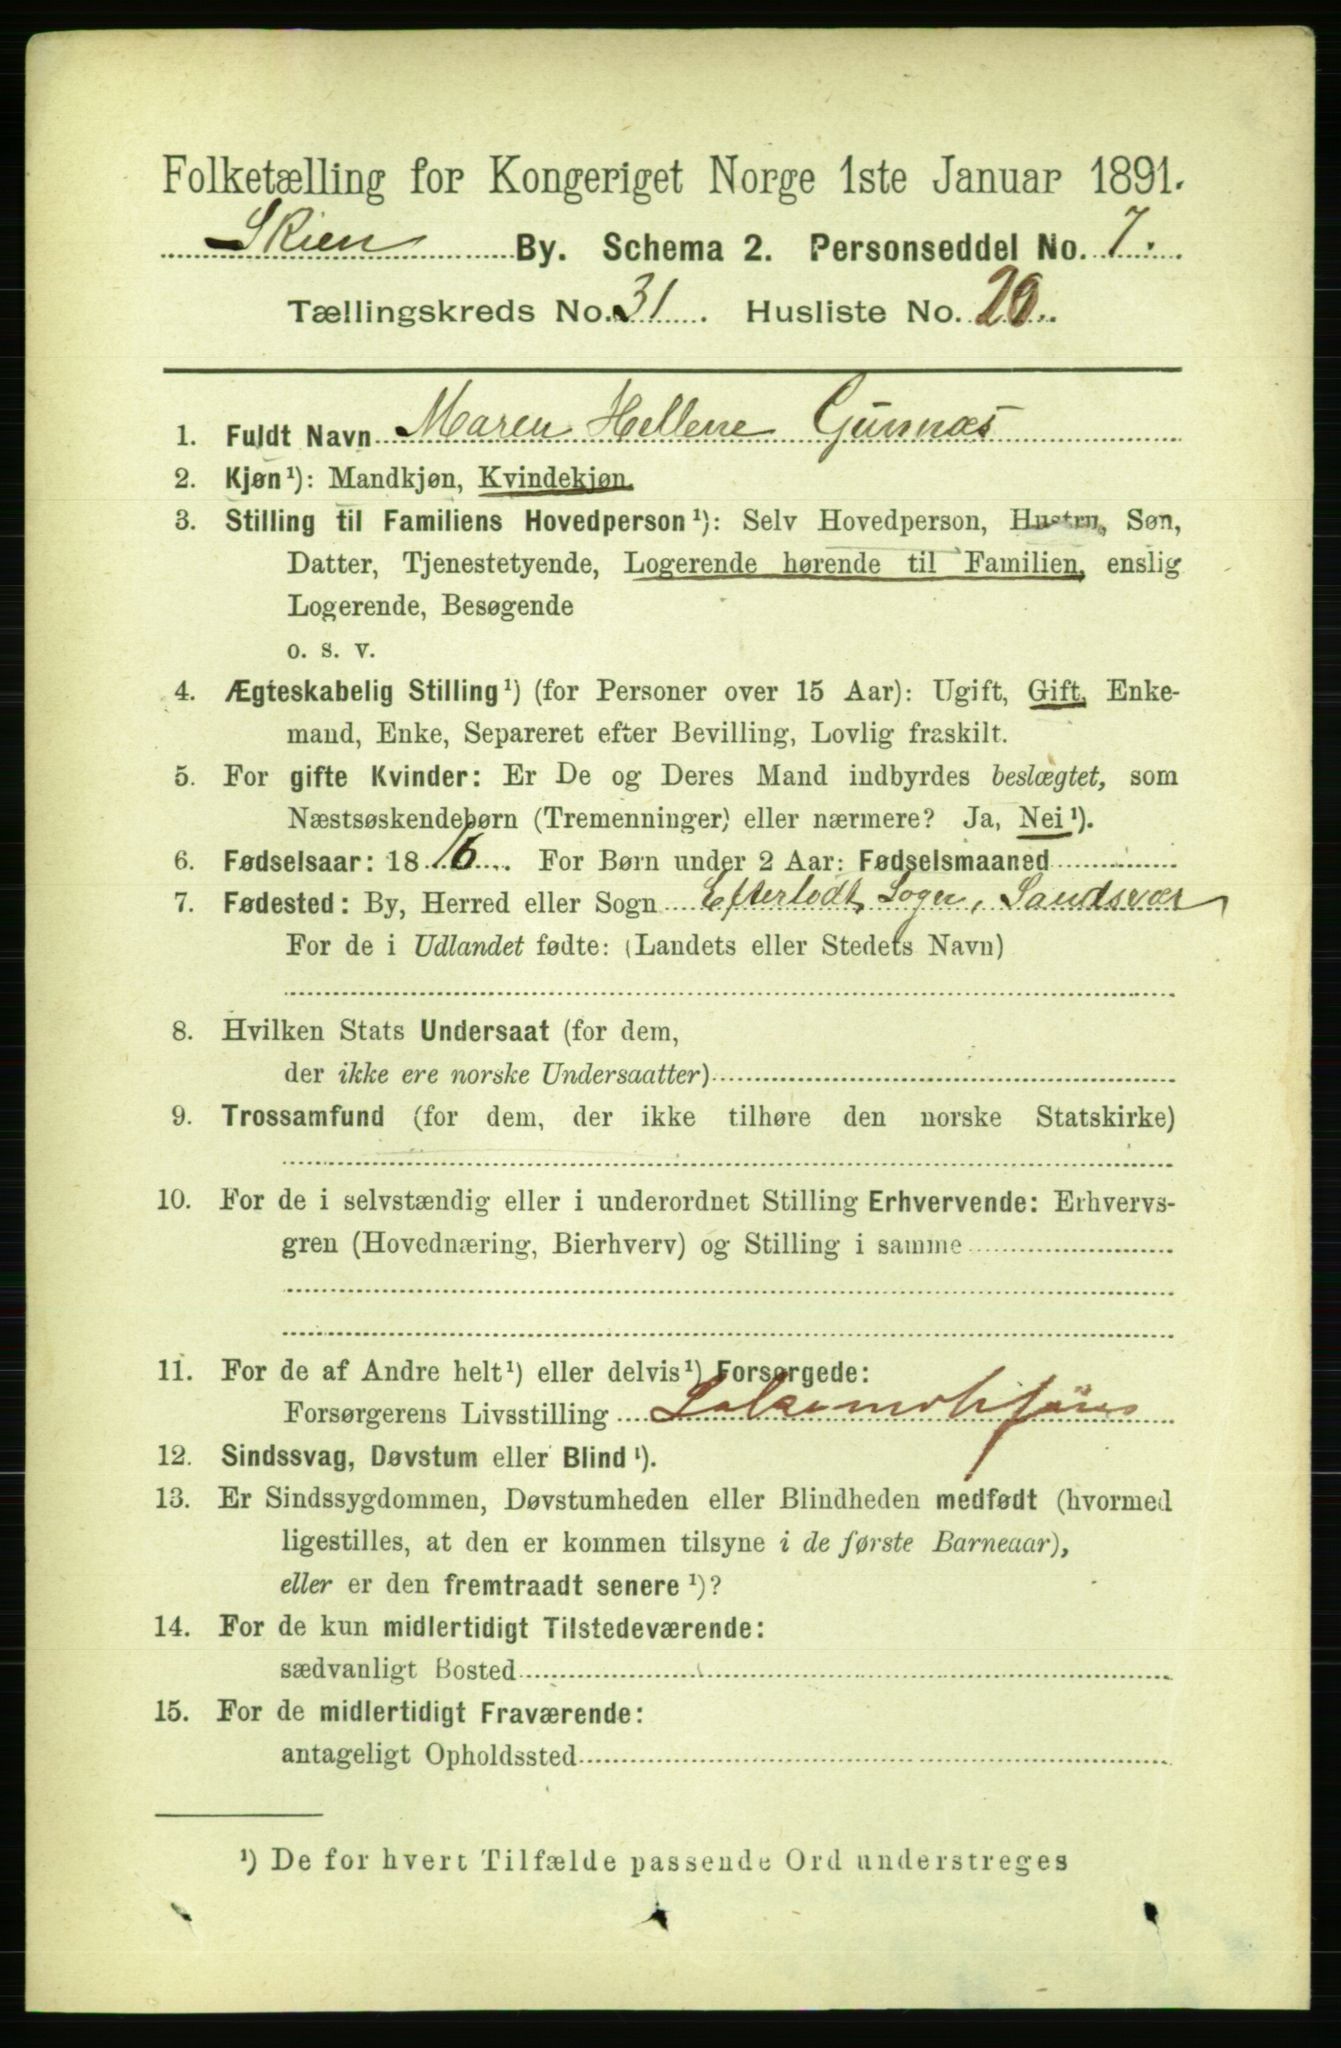 Folketælling for Kongeriget Norge 1ste Januar 1891.
Skien By. Schema 2. Personseddel No. 7.
Tællingskreds No. 31. Husliste No. 20.
1. Fuldt Navn Maren Hellene Gunnæs
2. Kjøn¹): Mandkjøn, Kvindekjøn.
3. Stilling til Familiens Hovedperson¹): Selv Hovedperson, Hustru, Søn,
Datter, Tjenestetyende, Logerende hørende til Familien, enslig
Logerende, Besøgende
o. s. v.
4. Ægteskabelig Stilling¹) (for Personer over 15 Aar): Ugift, Gift, Enke-
mand, Enke, Separeret efter Bevilling, Lovlig fraskilt.
5. For gifte Kvinder: Er De og Deres Mand indbyrdes beslægtet, som
Næstsøskendebørn (Tremenninger) eller nærmere? Ja, Nei¹).
6. Fødselsaar: 1816. For Børn under 2 Aar: Fødselsmaaned
7. Fødested: By, Herred eller Sogn Efterlodt Sogn, Sandsvær
For de i Udlandet fødte: (Landets eller Stedets Navn)
8. Hvilken Stats Undersaat (for dem,
der ikke ere norske Undersaatter)
9. Trossamfund (for dem, der ikke tilhøre den norske Statskirke)
10. For de i selvstændig eller i underordnet Stilling Erhvervende: Erhvervs-
gren (Hovednæring, Bierhverv) og Stilling i samme
11. For de af Andre helt¹) eller delvis¹) Forsørgede:
Forsørgerens Livsstilling
12. Sindssvag, Døvstum eller Blind¹).
13. Er Sindssygdommen, Døvstumheden eller Blindheden medfødt (hvormed
ligestilles, at den er kommen tilsyne i de første Barneaar),
eller er den fremtraadt senere¹)?
14. For de kun midlertidigt Tilstedeværende:
sædvanligt Bosted
15. For de midlertidigt Fraværende:
antageligt Opholdssted
¹) De for hvert Tilfælde passende Ord understreges